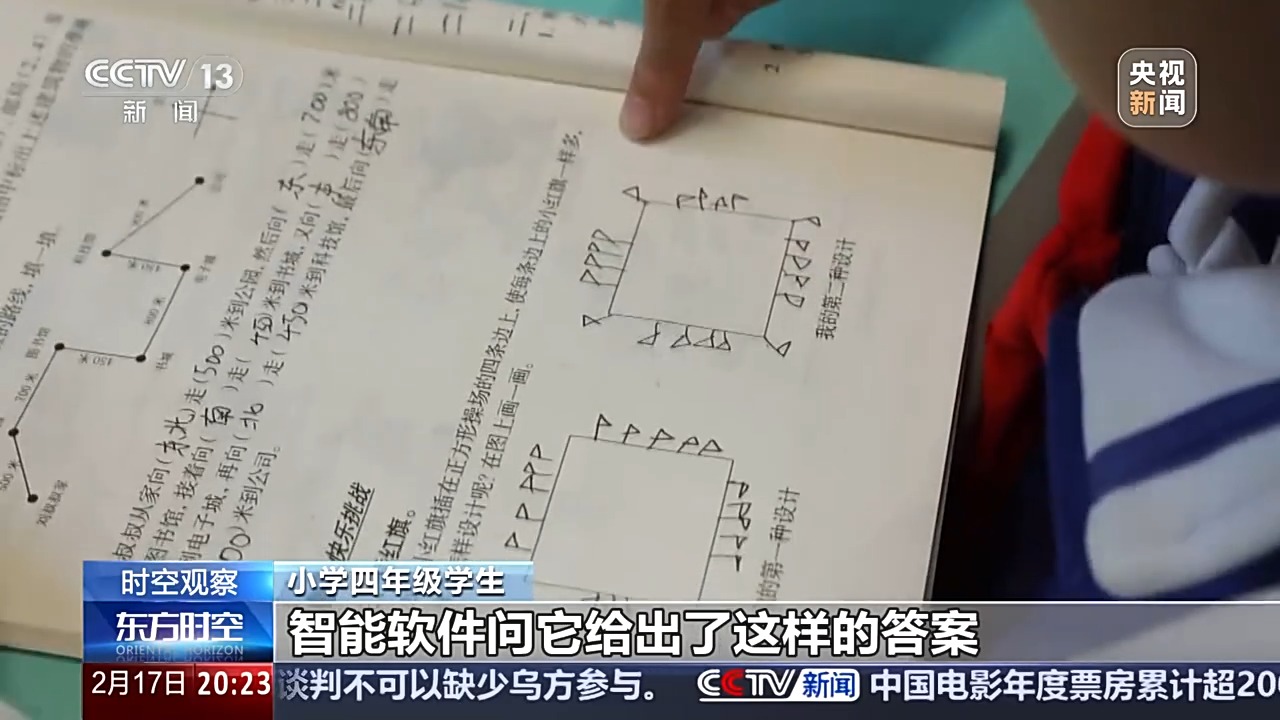 CCTV 13
新闻
央视
新闻
使每条边上的小红旗一样多.
小红旗插在正方形操场的四条边上,
怎样设计呢?在图上画一画。
我的第二种设计
的第一种设计
快乐挑战
红旗。
叔叔从家向(东北)走(500)米到公园,然后向(东)走(700)米
图书馆,接着向(南)走(450)米到书城,又向(东)走(800)
到电子城,再向(北)走(450)米到科技馆,最后向(东南)走
00)米到公司。
的路线,填一填。
图书馆
书城
电子城
700米
450米
时空观察
小学四年级学生
东方时空
ORIENTAL HORIZON
智能软件问它给出了这样的答案
2月17日 20:23
谈判不可以缺少乌方参与。 CCTV 新闻 中国电影年度票房累计超200